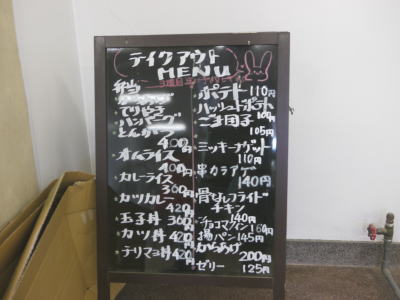 テイクアウト
MENU
弁当
からあげ
てりやき
ハンバーグ
とんかつ
400円
オムライス
400円
カレーライス
360円
カツカレー
420円
玉子丼 360円
カツ丼 420円
テリマヨ丼 420円
ポテト 110円
ハッシュドポテト
100円
ごま団子
105円
ミッキーナゲット
110円
串カラアゲ
140円
骨なしフライド
チキン
140円
チョコマフィン 160円
揚パン 145円
からあげ
200円
ゼリー 125円